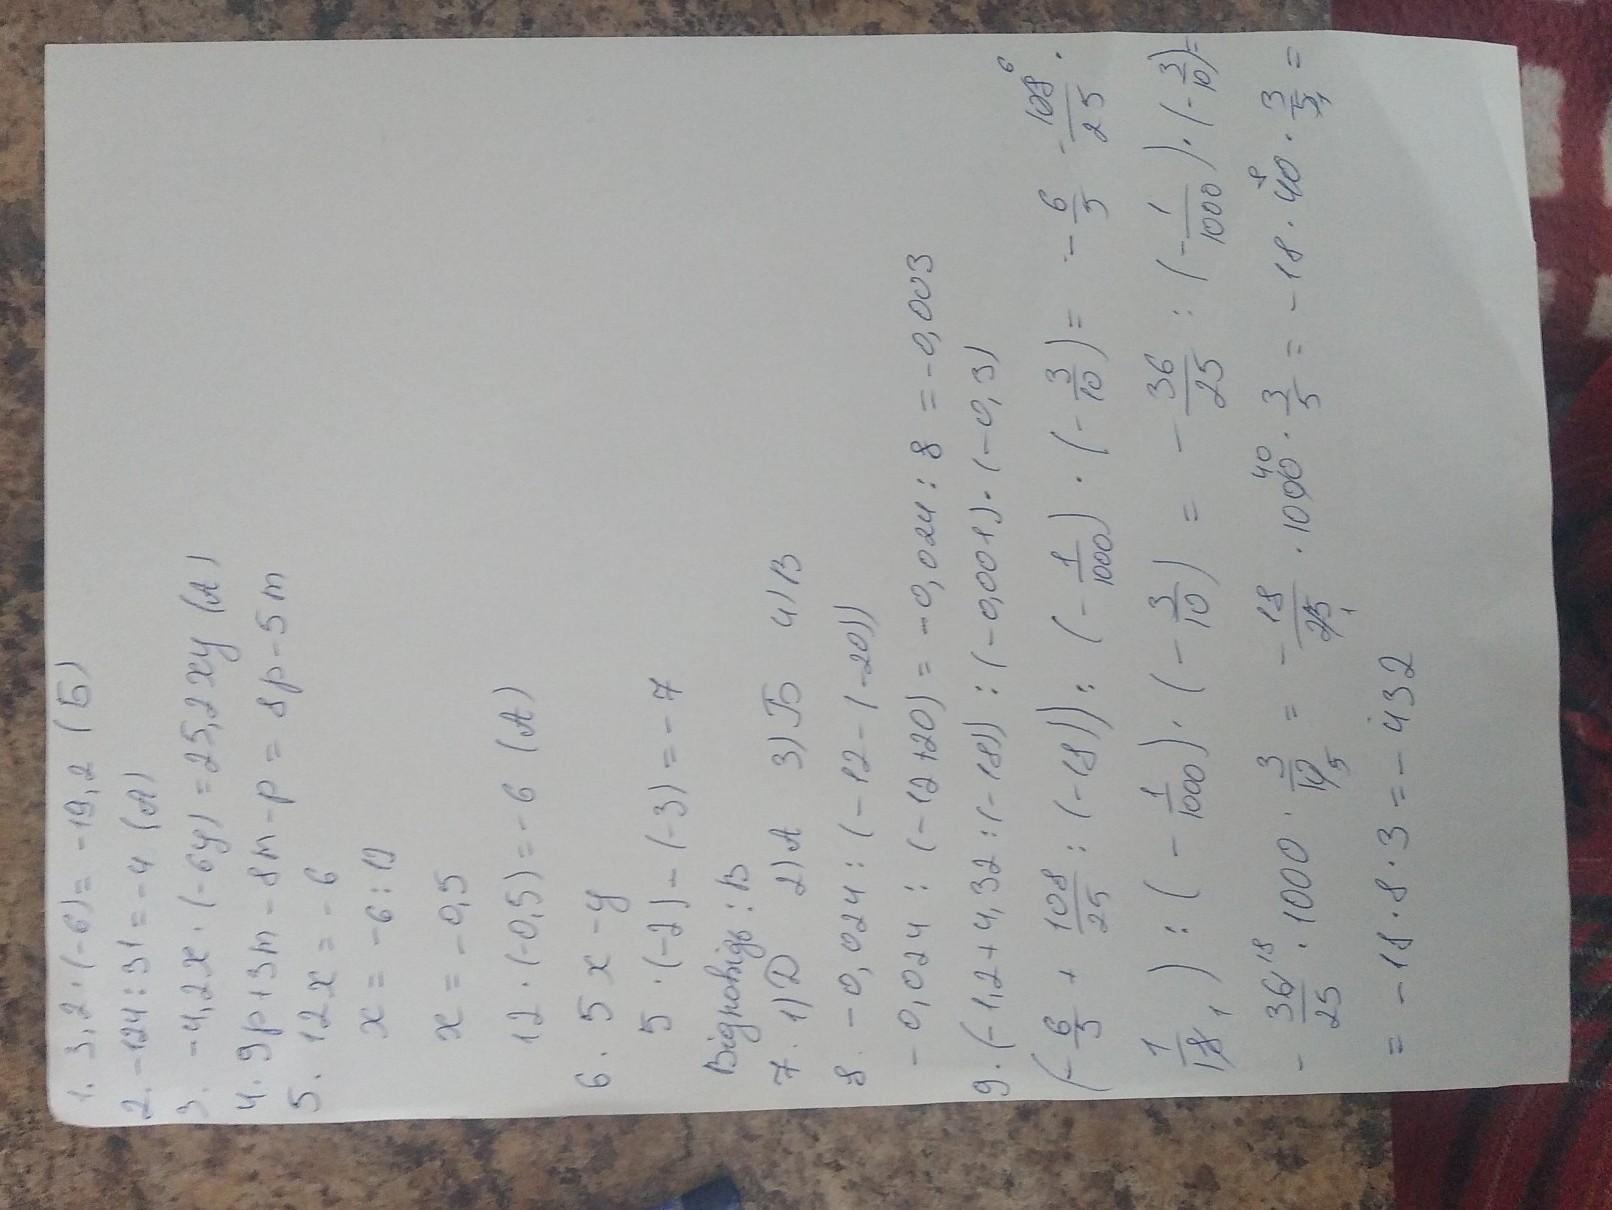 1. 3,2·(-6)=-19,2 (Б)
2. -124:31=-4 (А)
3. -4,2x·(-6y)=25,2xy (А)
4. 9p+3m-8m-p=8p-5m
5. 12x=-6
x=-6:12
x=-0,5
12·(-0,5)=-6 (А)
6. 5x-y
5·(-2)-(-3)=-7
Відповідь: В
7. 1)Д 2)А 3)Б 4)В
8. -0,024:(-12-(-20))
-0,024:(-12+20)=-0,024:8=-0,003
9. (-1,2+4,32:(-18)):(-0,001)·(-0,3)
(-6/5+108/25:(-18)):(-1/1000)·(-3/10)=-6/5-108/25 6·
1/18 1):(-1/1000)·(-3/10)=-36/25:(-1/1000)·(-3/10)=
-36/25 18·1000·3/10 5=-18/25 1·1000 40·3/5=-18·40 8·3/5 1=
=-18·8·3=-432